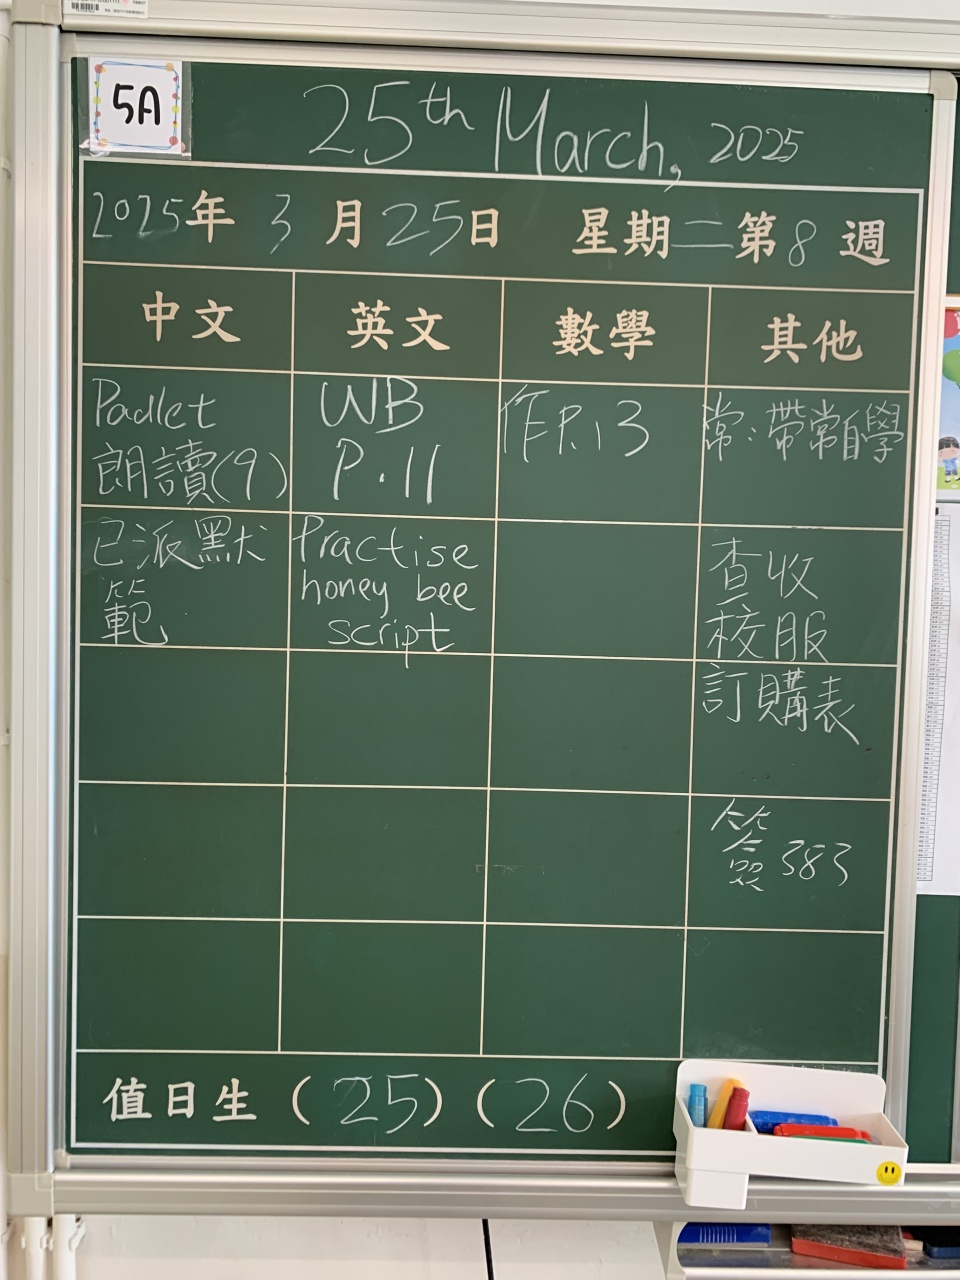 5A
25th March, 2025
2025年 3 月 25日 星期二第 8 週
中文
英文
數學
其他
Padlet
朗讀(9)
WB
P.11
作P.13
常:帶常自學
已派默
範
Practise
honey bee
script
查收
校服
訂購表
簽 383
值日生 (25) (26)